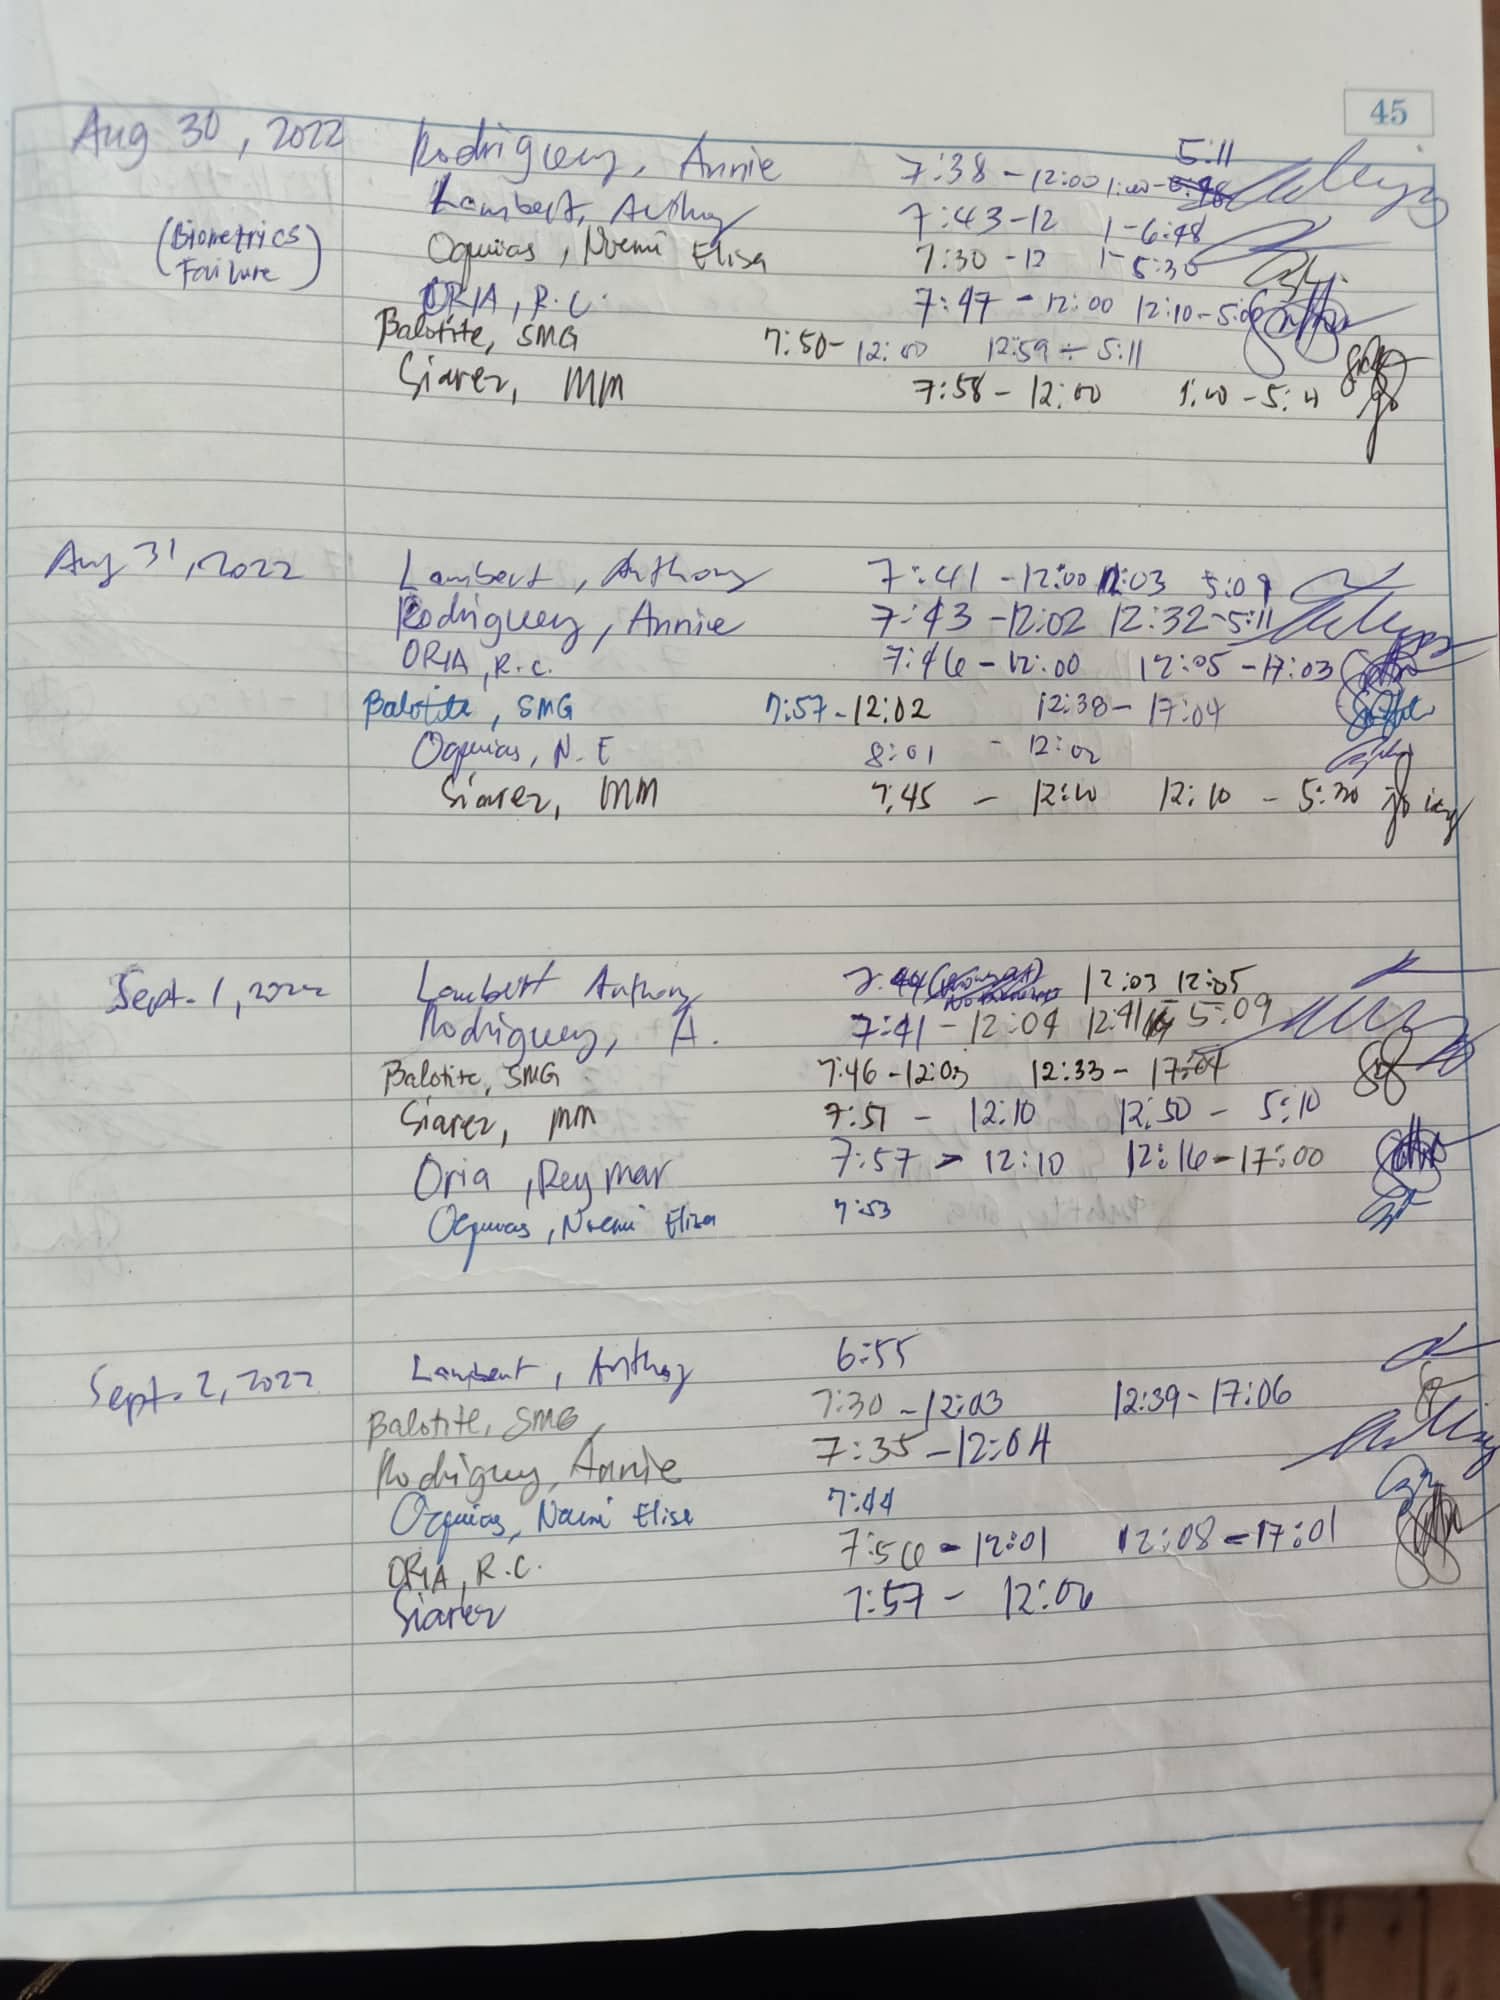 45
Aug 30, 2022 Rodriguez, Annie 7:38 - 12:00 1:00 - 5:11
Lambert, Anthony 7:43-12 1-6:48
(Biometrics Failure)
Oquias, Noemi Elisa 7:30 - 12 1- 5:30
ORIA, R.C. 7:47 - 12:00 12:10 - 5:00
Balotite, SMG 7:50- 12:00 12:59 - 5:11
Siarez, MM 7:58 - 12:00 1:00 - 5:11
Aug 31, 2022 Lambert, Anthony 7:41 - 12:00 12:03 5:09
Rodriguez, Annie 7:43 - 12:02 12:32-5:11
ORIA, R.C. 7:46 - 12:00 12:05 - 17:03
Balotite, SMG 7:57-12:02 12:38- 17:04
Oquias, N.E 8:01 - 12:02
Siarez, MM 7:45 - 12:10 12:10 - 5:30
Sept. 1, 2022 Lambert Anthony 7:44 12:03 12:05
Rodriguez, A. 7:41 - 12:04 12:41 5:09
Balotite, SMG 7:46 -12:03 12:33 - 17:04
Siarez, MM 7:51 - 12:10 12:50 - 5:10
Oria, Reymar 7:57 - 12:10 12:16-17:00
Oquias, Noemi Elisa 7:53
Sept. 2, 2022 Lambert, Anthony 6:55
Balotite, SMG 7:30 - 12:03 12:39-17:06
Rodriguez, Annie 7:35 - 12:04
Oquias, Noemi Elisa 7:44
ORIA, R.C. 7:56 - 12:01 12:08 - 17:01
Siarez 7:57 - 12:06